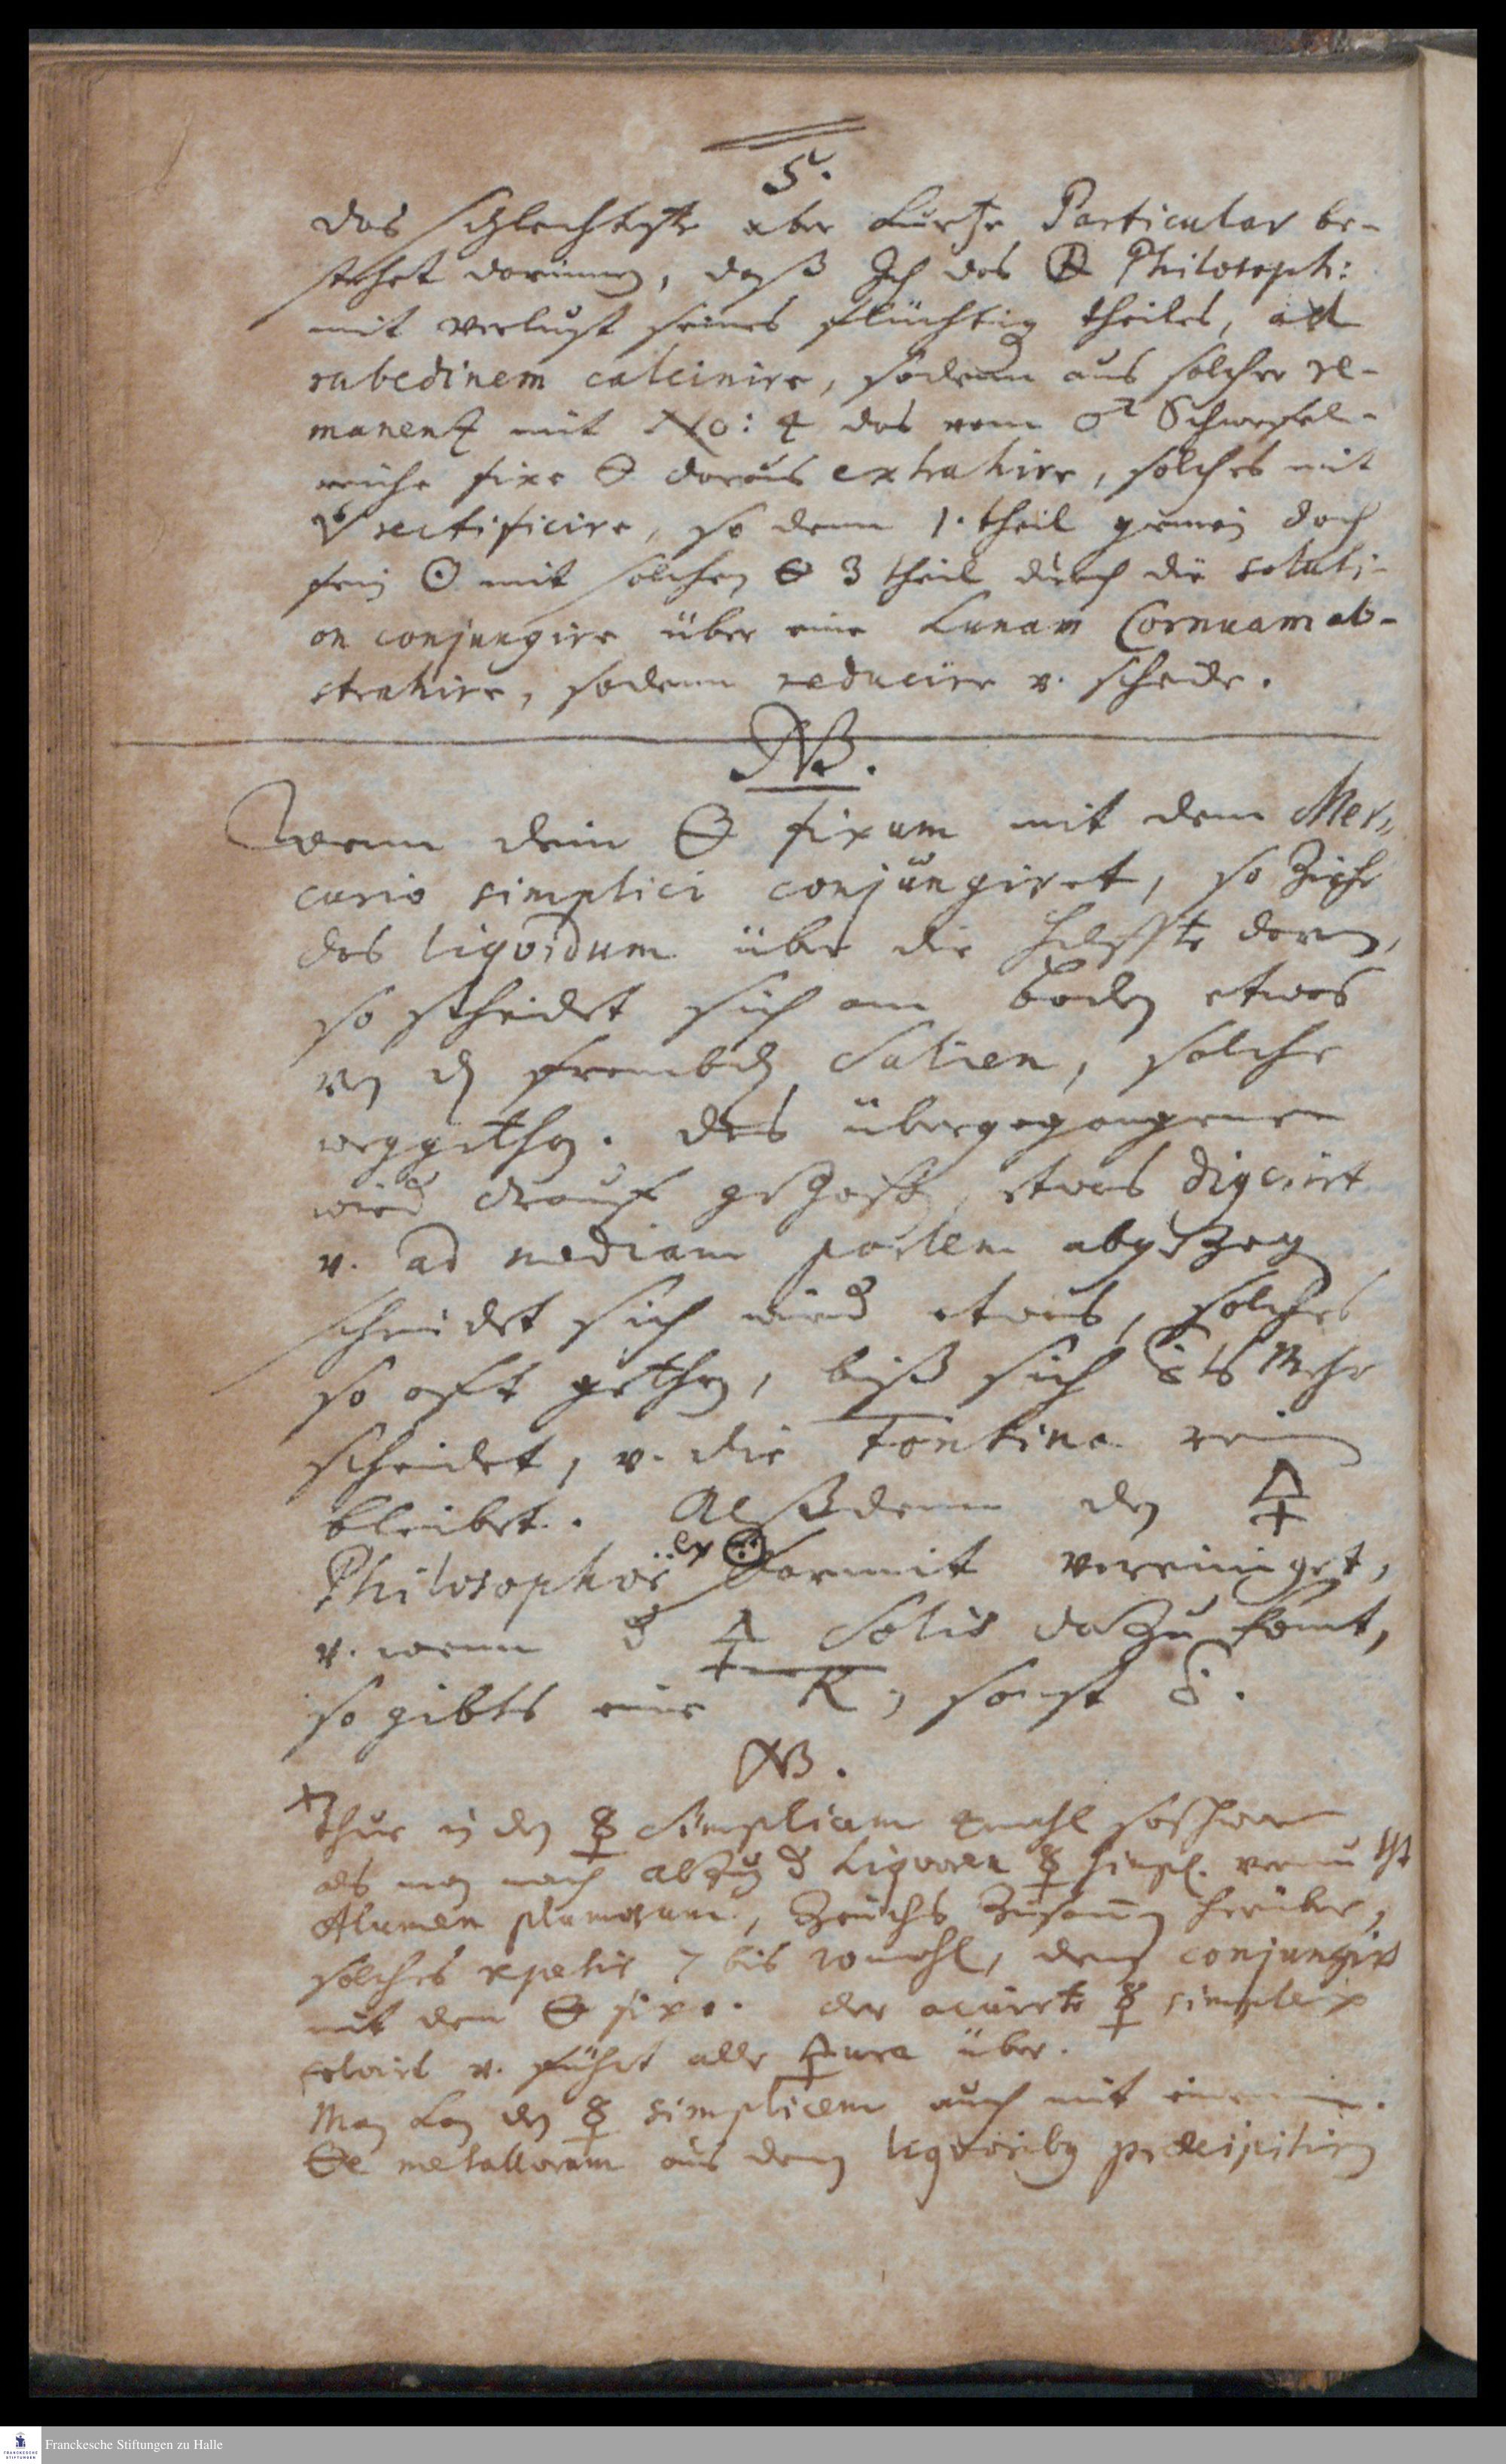 5.
das schlechteste aber kurtze Particular be-
stehet darinnen, daß Ich das Philosoph:
mit verlust seines flüchtig theiles, ad
rubedinem calcinire, sodann aus solcher re-
manenz mit No: 4 das vom ♂ Schwefel-
reiche fixe 🜔 daraus extrahire, solches mit
rectificire, so denn 1. theil gemein doch
fein ☉ mit solchen 🜔 3 theil durch die soluti-
on conjungire über eine Lunam Cornuam ab-
strahire, sodenn reducire v. scheide.
NB.
Wenn dein 🜔 fixum mit dem Mer„
curio simplici conjungiret, so ziehe
das liqvidum über die helffte davon,
so scheidet sich am boden etwas
von den frembden Salien, solche
weggethan. das übergegangene
wied drauf gegossen etwas digerirt
v. ad mediam partem abgezogen
scheidet sich wied etwas, solches
so oft gethan, biß sich nichts mehr
scheidet, v. die Fontina rein
bleibet. Alßdenn den 🜍
Philosophor ex ☉ darmit vereiniget,
v. wenn d 🜍 Solis dazu komt,
so gibts eine R, sonst
NB.
thue in den ☿ Simplicem 4 mahl soschwer
als man nach abzug d Liqvoren ☿ simpl.
Alumen plumosum, Zeuchs zusamen herüber,
solches repetir 7 bis 10 mahl, denn conjungirs
mit den 🜔 fixo. der acuirte ☿ simplex
solvirt v. führt alle 🜍ura über.
Man kan den ☿ simplicem auch mit einem
🜔e metallorum aus denen liqvoribg præcipitiren
Franckesche Stiftungen zu Halle